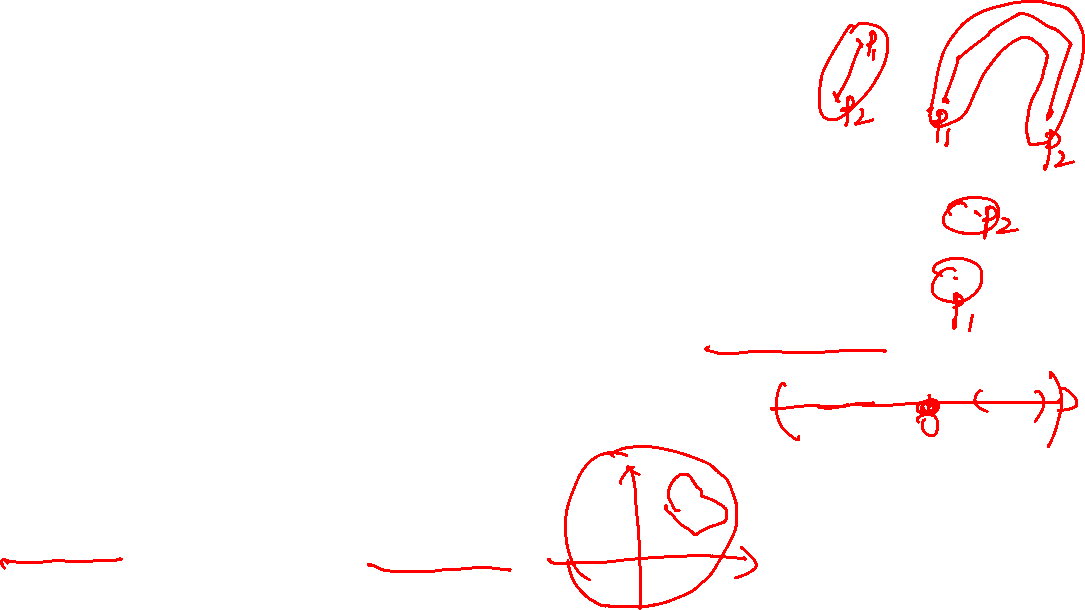 P1
P2
P1
P2
P2
P1
0